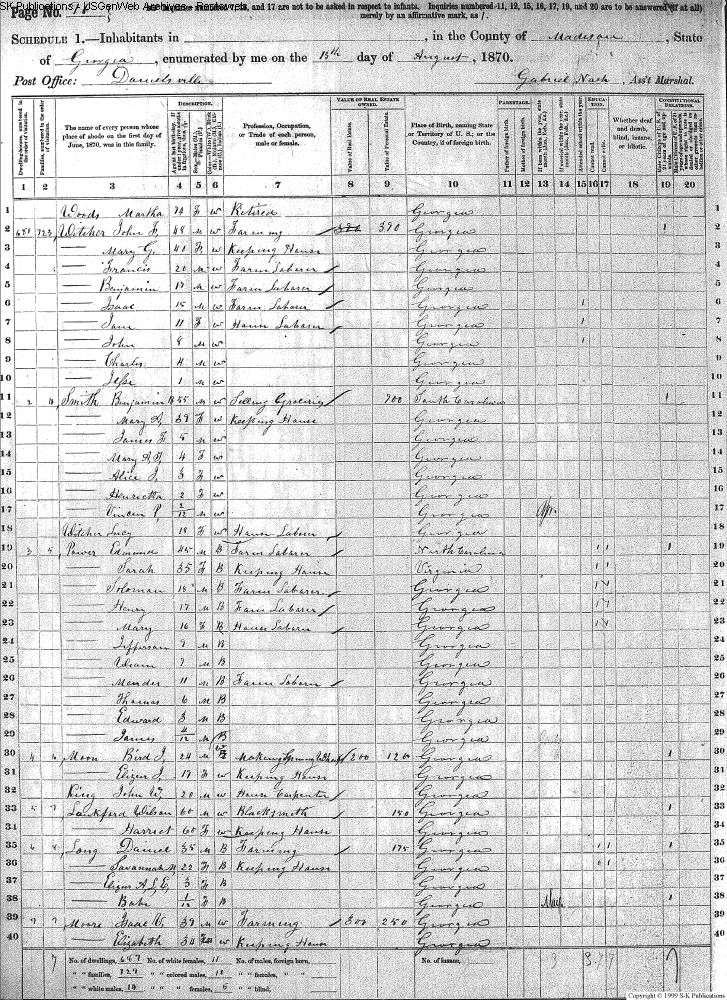 SK Publications / USGenWeb Archives - Restoreds
Page No. 90
Inquiries numbered 7, 16, and 17 are not to be asked in respect to infants. Inquiries numbered 11, 12, 15, 16, 17, 19, and 20 are to be answered (if at all)
merely by an affirmative mark, as /.
SCHEDULE 1.—Inhabitants in , in the County of Madison, State
of Georgia, enumerated by me on the 15th day of August, 1870.
Post Office: Danielsville Gabriel Nash, Ass't Marshal.
DESCRIPTION. VALUE OF REAL ESTATE OWNED. PARENTAGE. EDUCATION. CONSTITUTIONAL RELATIONS.
The name of every person whose place of abode on the first day of June, 1870, was in this family.
Profession, Occupation, or Trade of each person, male or female.
Value of Real Estate.
Value of Personal Estate.
Place of Birth, naming State or Territory of U. S.; or the Country, if of foreign birth.
Father of foreign birth.
Mother of foreign birth.
Attended school within the year.
Cannot read.
Cannot write.
Whether deaf and dumb, blind, insane, or idiotic.
1 2 3 4 5 6 7 8 9 10 11 12 13 14 15 16 17 18 19 20
1 Woods Martha 74 F W Retired Georgia 1
2 651 723 Witcher John F. 48 M W Farming 390 Georgia 1 2
3 — Mary G. 40 F W Keeping House Georgia 3
4 — Francis 20 M W Farm Laborer Georgia 4
5 — Benjamin 17 M W Farm Laborer Georgia 5
6 — Isaac 15 M W Farm Laborer Georgia 1 6
7 — Jane 11 F W House Laborer Georgia 1 7
8 — John 8 M W Georgia 1 8
9 — Charles 4 M W Georgia 9
10 — Jesse 1 M W Georgia 10
11 2 4 Smith Benjamin 55 M W Selling Groceries 700 South Carolina 1 11
12 — Mary A. 39 F W Keeping House Georgia 12
13 — James F. 5 M W Georgia 13
14 — Mary A. F. 4 F W Georgia 14
15 — Alice J. 3 F W Georgia 15
16 — Henrietta 2 F W Georgia 16
17 — Vincen P. 2/12 M W Georgia Apr. 17
18 Witcher Lucy 18 F W House Laborer Georgia 18
19 3 5 Power Edmond 45 M B Farm Laborer North Carolina 1 1 1 19
20 — Sarah 35 F B Keeping House Virginia 1 1 20
21 — Soloman 18 M B Farm Laborer Georgia 21
22 — Henry 17 M B Farm Laborer Georgia 22
23 — Mary 16 F B House Laborer Georgia 23
24 — Jefferson 9 M B Georgia 24
25 — 7 M B Georgia 25
26 — 11 M B Farm Laborer Georgia 26
27 — Thomas 6 M B Georgia 27
28 — Edward 3 M B Georgia 28
29 — James 4/12 M B Georgia 29
30 4 6 Moon Bird J. 24 M W Making Spinning Wheels 200 120 Georgia 1 30
31 — Elizer J. 17 F W Keeping House Georgia 31
32 King John W. 20 M W House Carpenter Georgia 32
33 5 7 Lankford Wilson 60 M W Blacksmith 150 Georgia 1 33
34 — Harriet 60 F W Keeping House Georgia 34
35 6 8 Long Daniel 35 M B Farming 175 Georgia 1 1 1 35
36 — Savannah 22 F B Keeping House Georgia 1 36
37 — 3 F B Georgia 37
38 — Babe 1/12 F B Georgia March 38
39 7 Moore Isaac V. 39 M W Farming 300 250 Georgia 1 39
40 — Elizabeth 34 F W Keeping House Georgia 40
No. of dwellings, 657 No. of white females, 11 No. of males, foreign born, No. of insane,
" " families, 729 " " colored males, 10 " " females, "
" " white males, " " females, 6 " " blind,
Copyright © 1999 S-K Publications